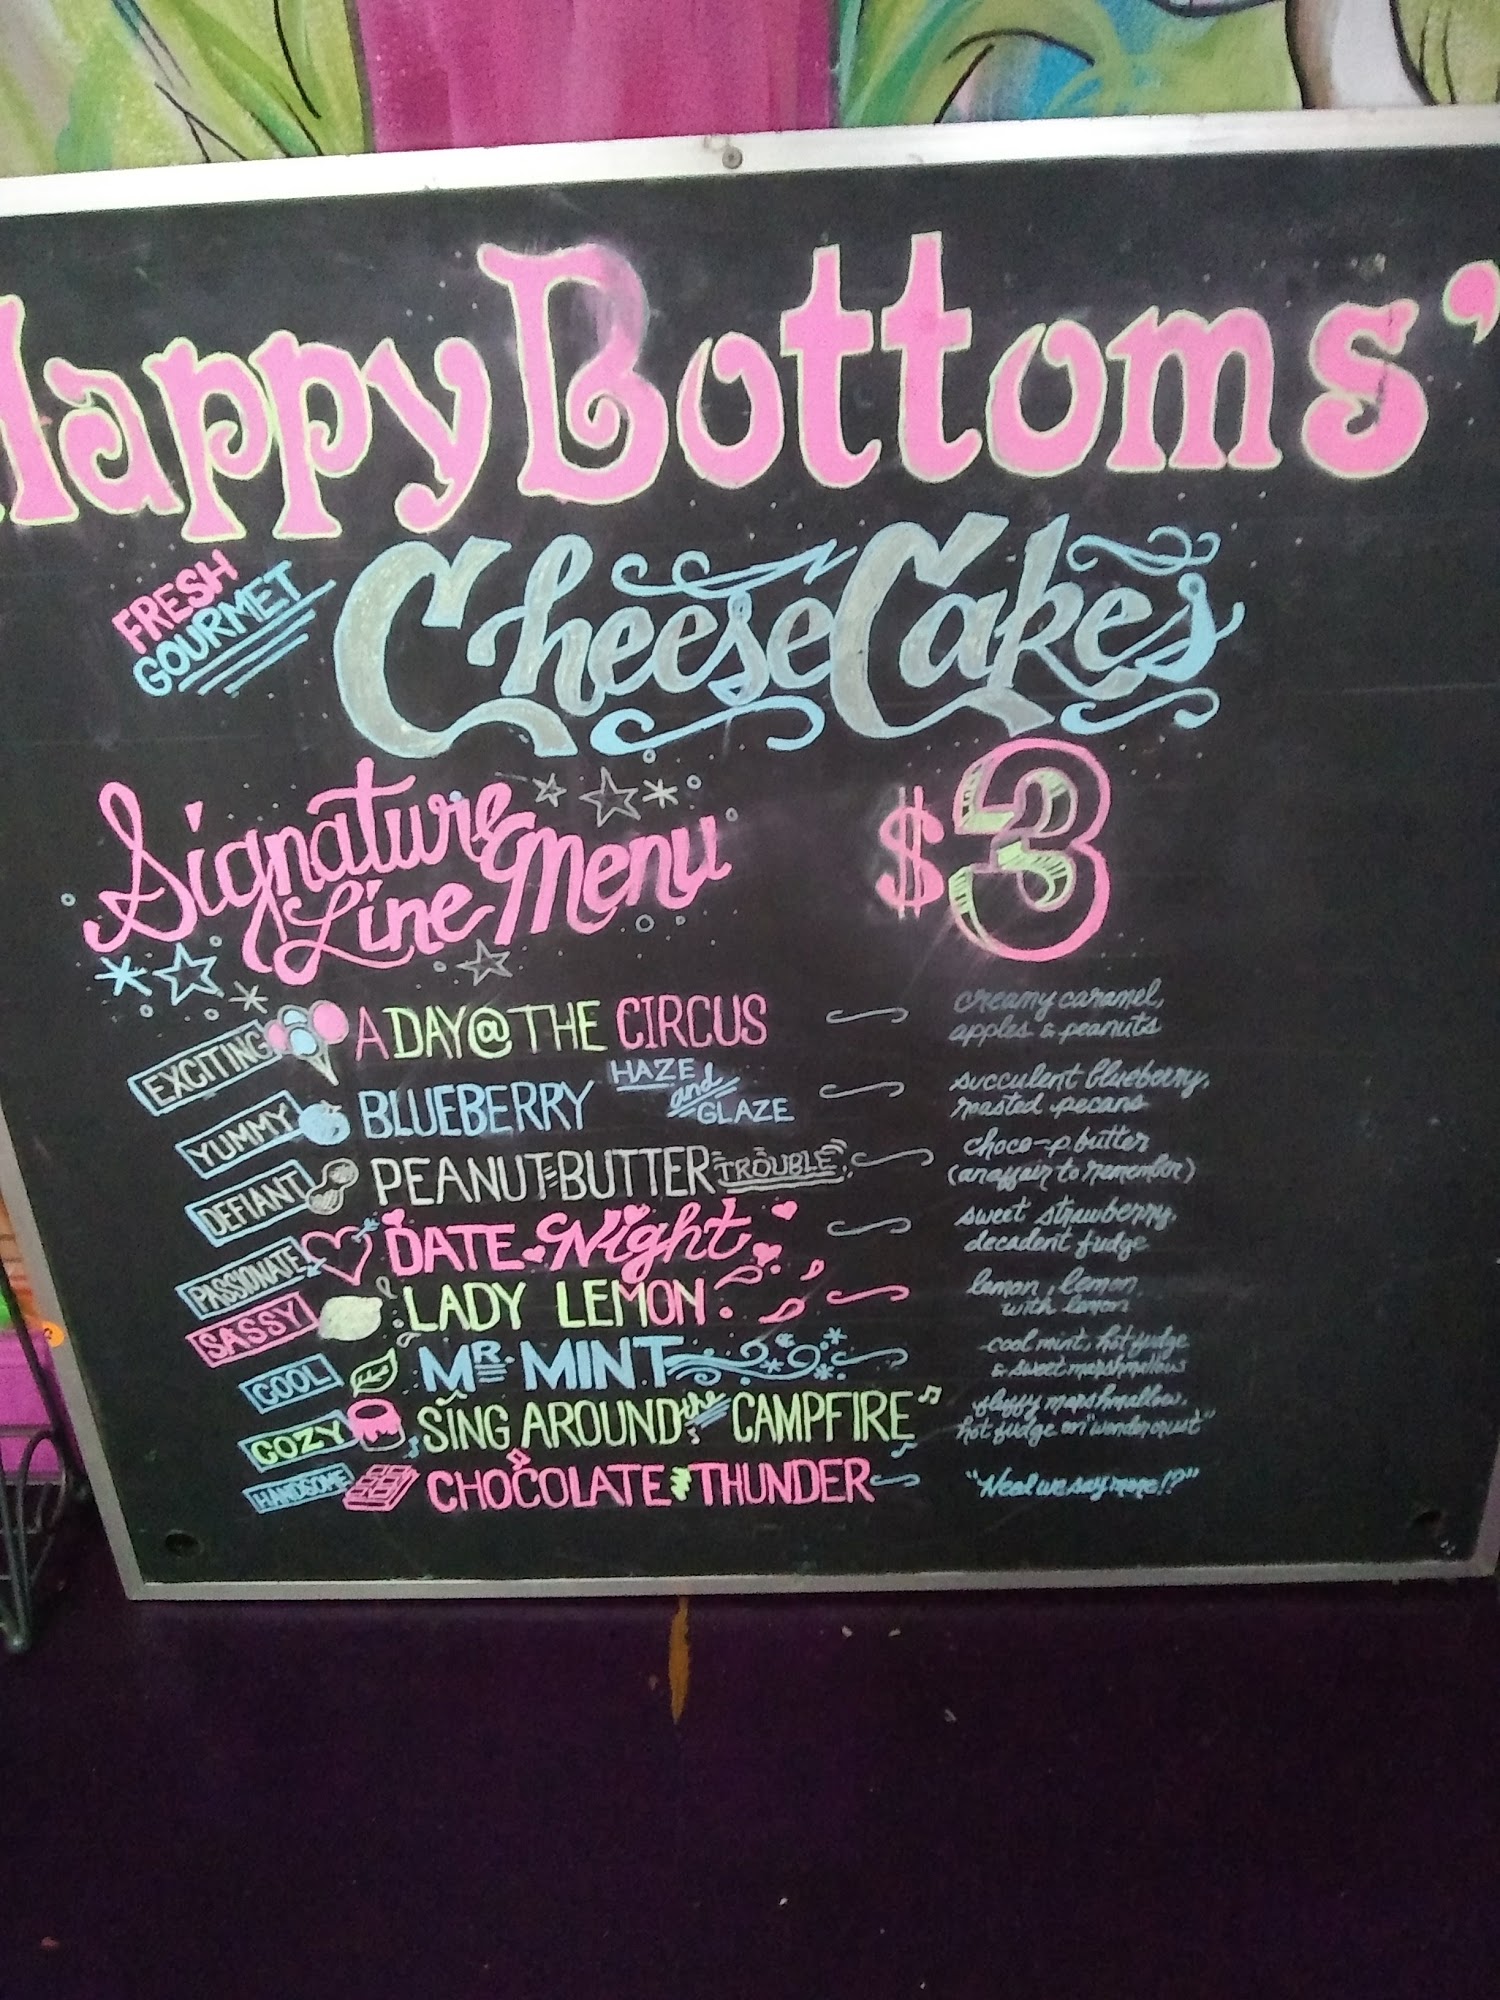 HappyBottoms'
FRESH
GOURMET
CheeseCakes
Signature
Line Menu
$3
EXCITING A DAY @ THE CIRCUS creamy caramel,
apples & peanuts
YUMMY BLUEBERRY HAZE and GLAZE succulent blueberry,
roasted pecans
DEFIANT PEANUT-BUTTER TROUBLE choco-p.butter
(an affair to remember)
PASSIONATE DATE Night sweet strawberry,
decadent fudge
SASSY LADY LEMON lemon, lemon,
with lemon
COOL MR. MINT cool mint, hot fudge
& sweet marshmallows
COZY SING AROUND the CAMPFIRE fluffy marshmallow,
hot fudge on "wondercrust"
HANDSOME CHOCOLATE THUNDER "Need we say more!?"